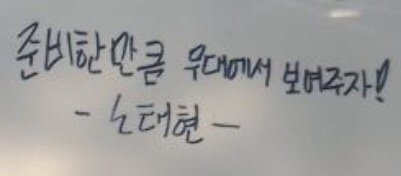 준비한만큼 무대에서 보여주자!
- 노태현 -